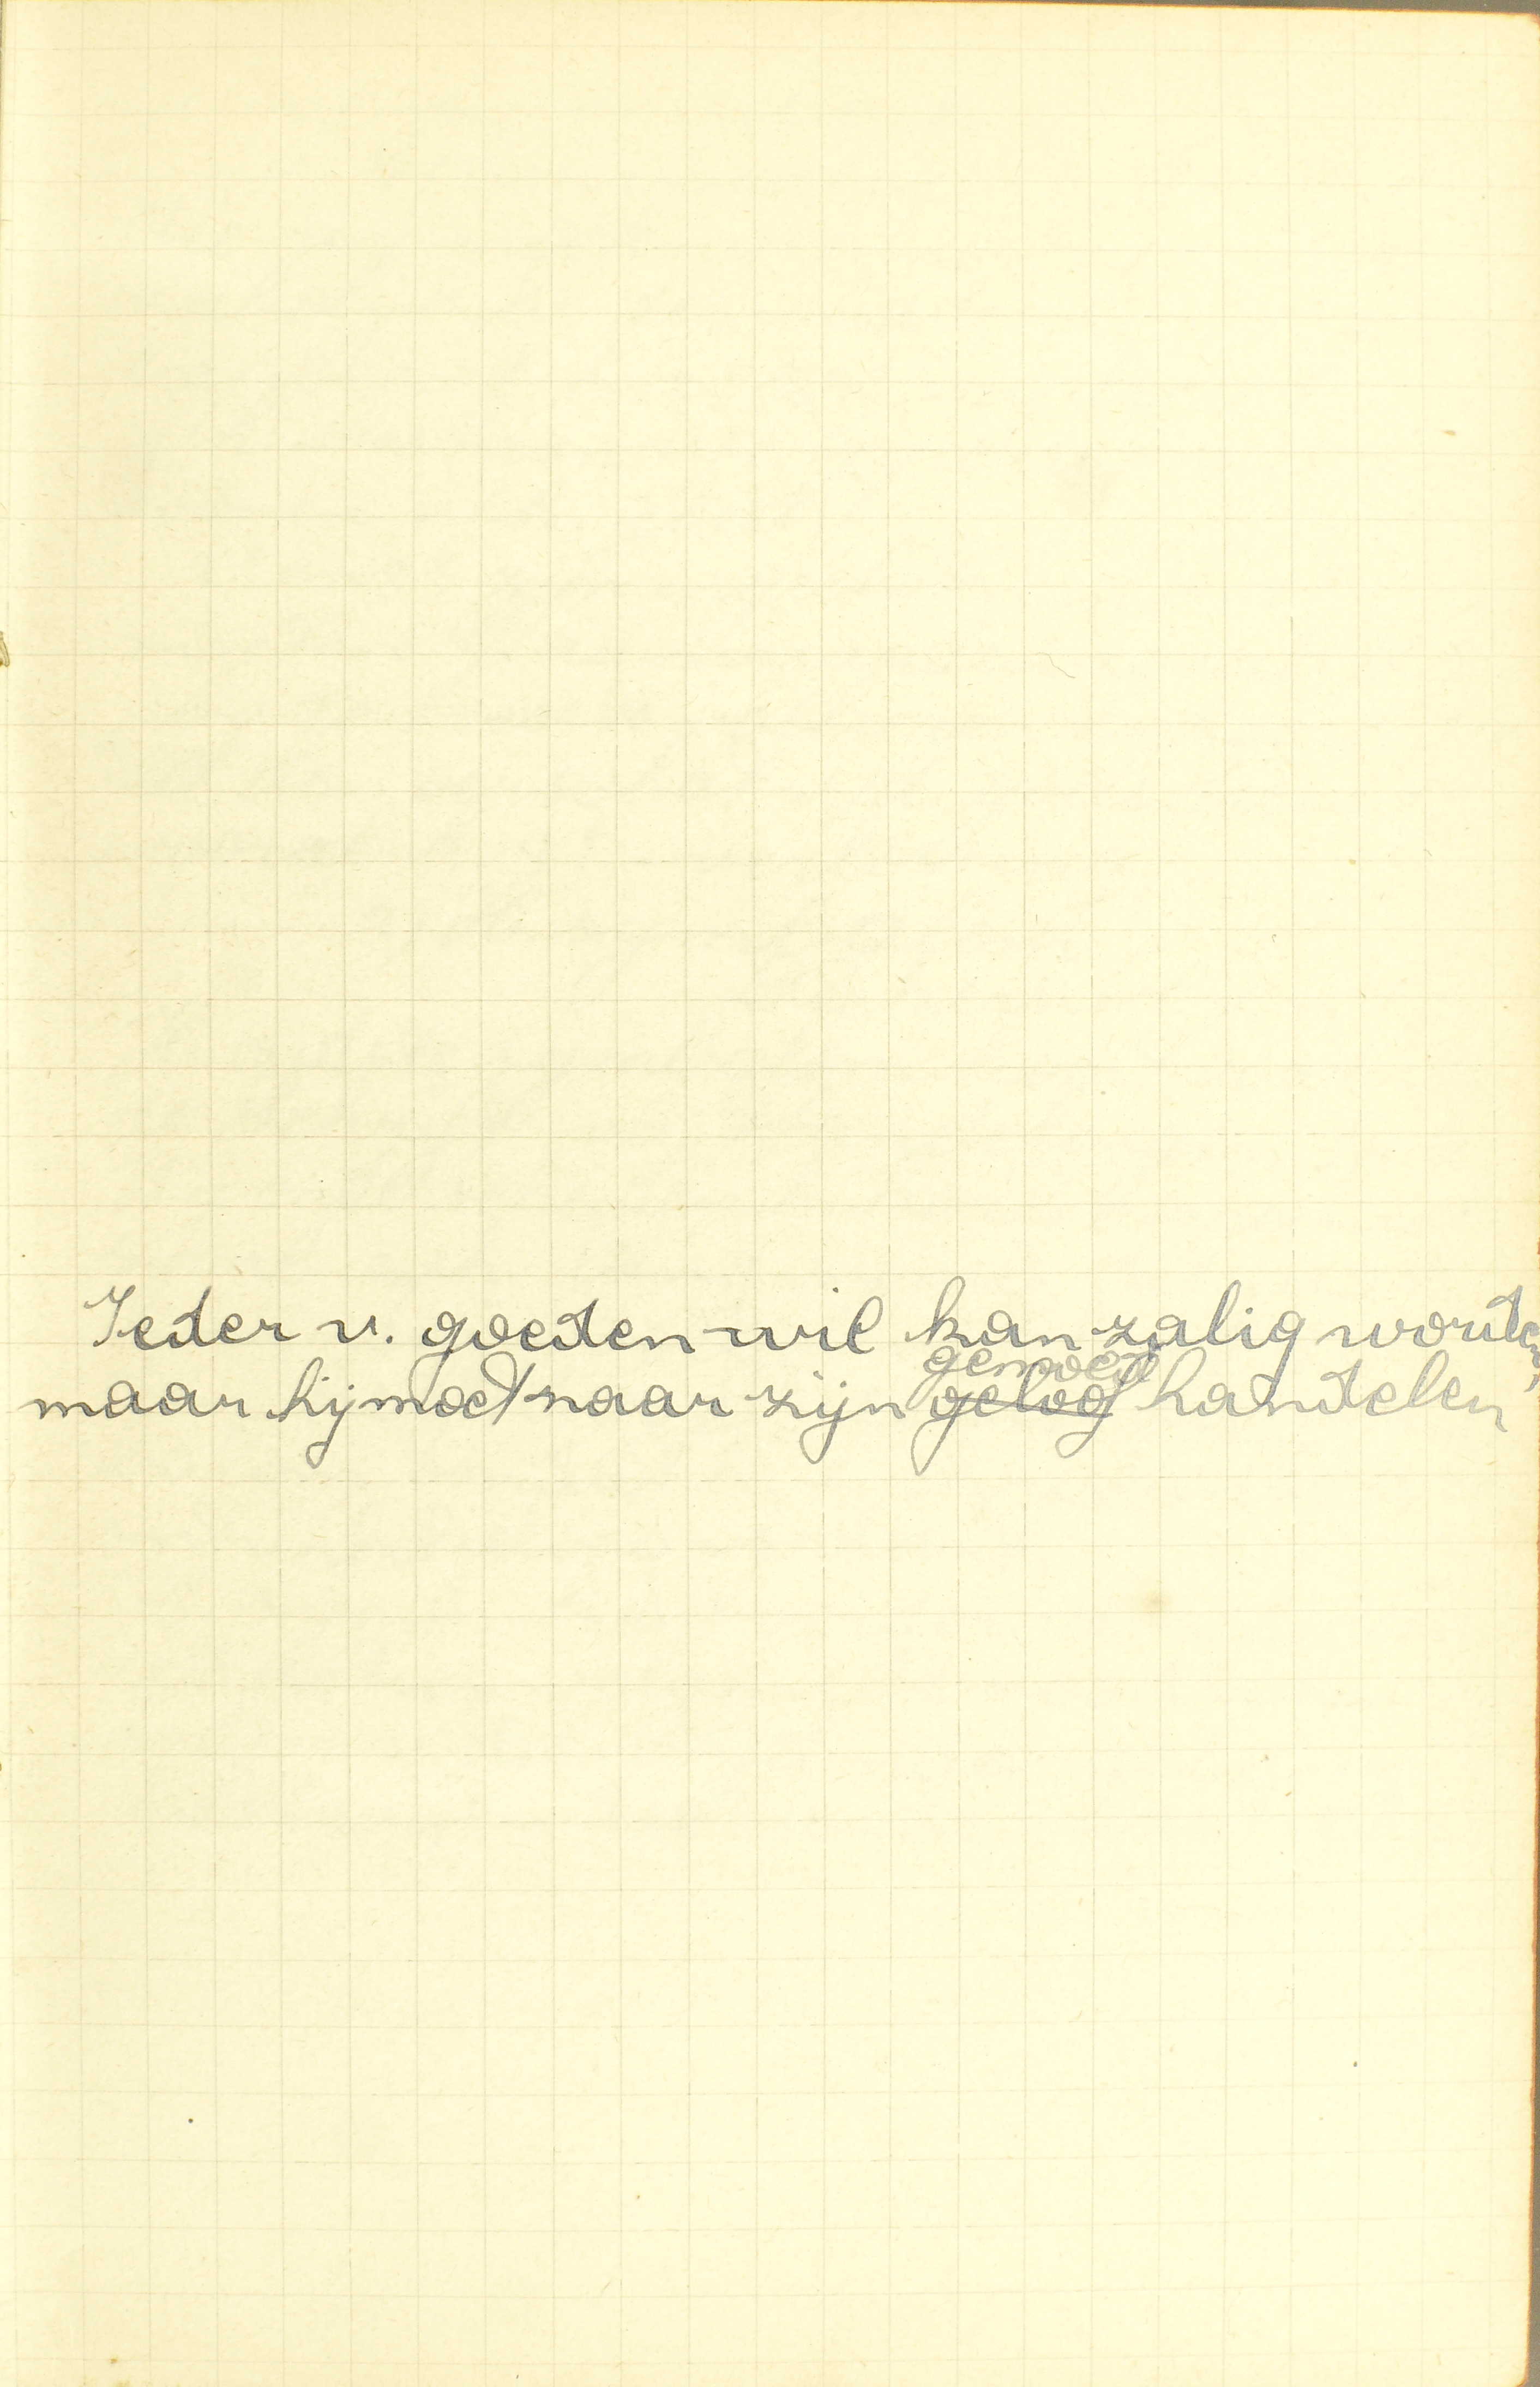 Ieder v. goeden wil kan zalig worden,
gemoed
maar hij moet naar zijn geloof handelen